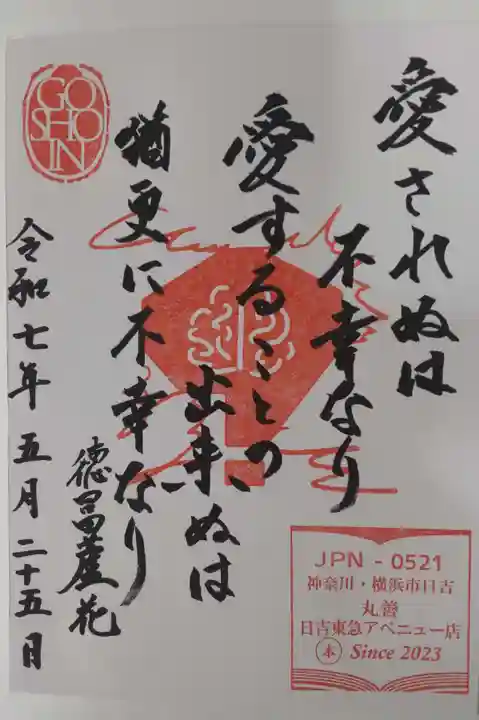 愛されぬは
不幸なり
愛することの
出来ぬは
猶更に不幸なり
徳冨蘆花
令和七年 五月二十五日
GO
SHO
IN
JPN - 0521
神奈川・横浜市日吉
丸善
日吉東急アベニュー店
本 Since 2023